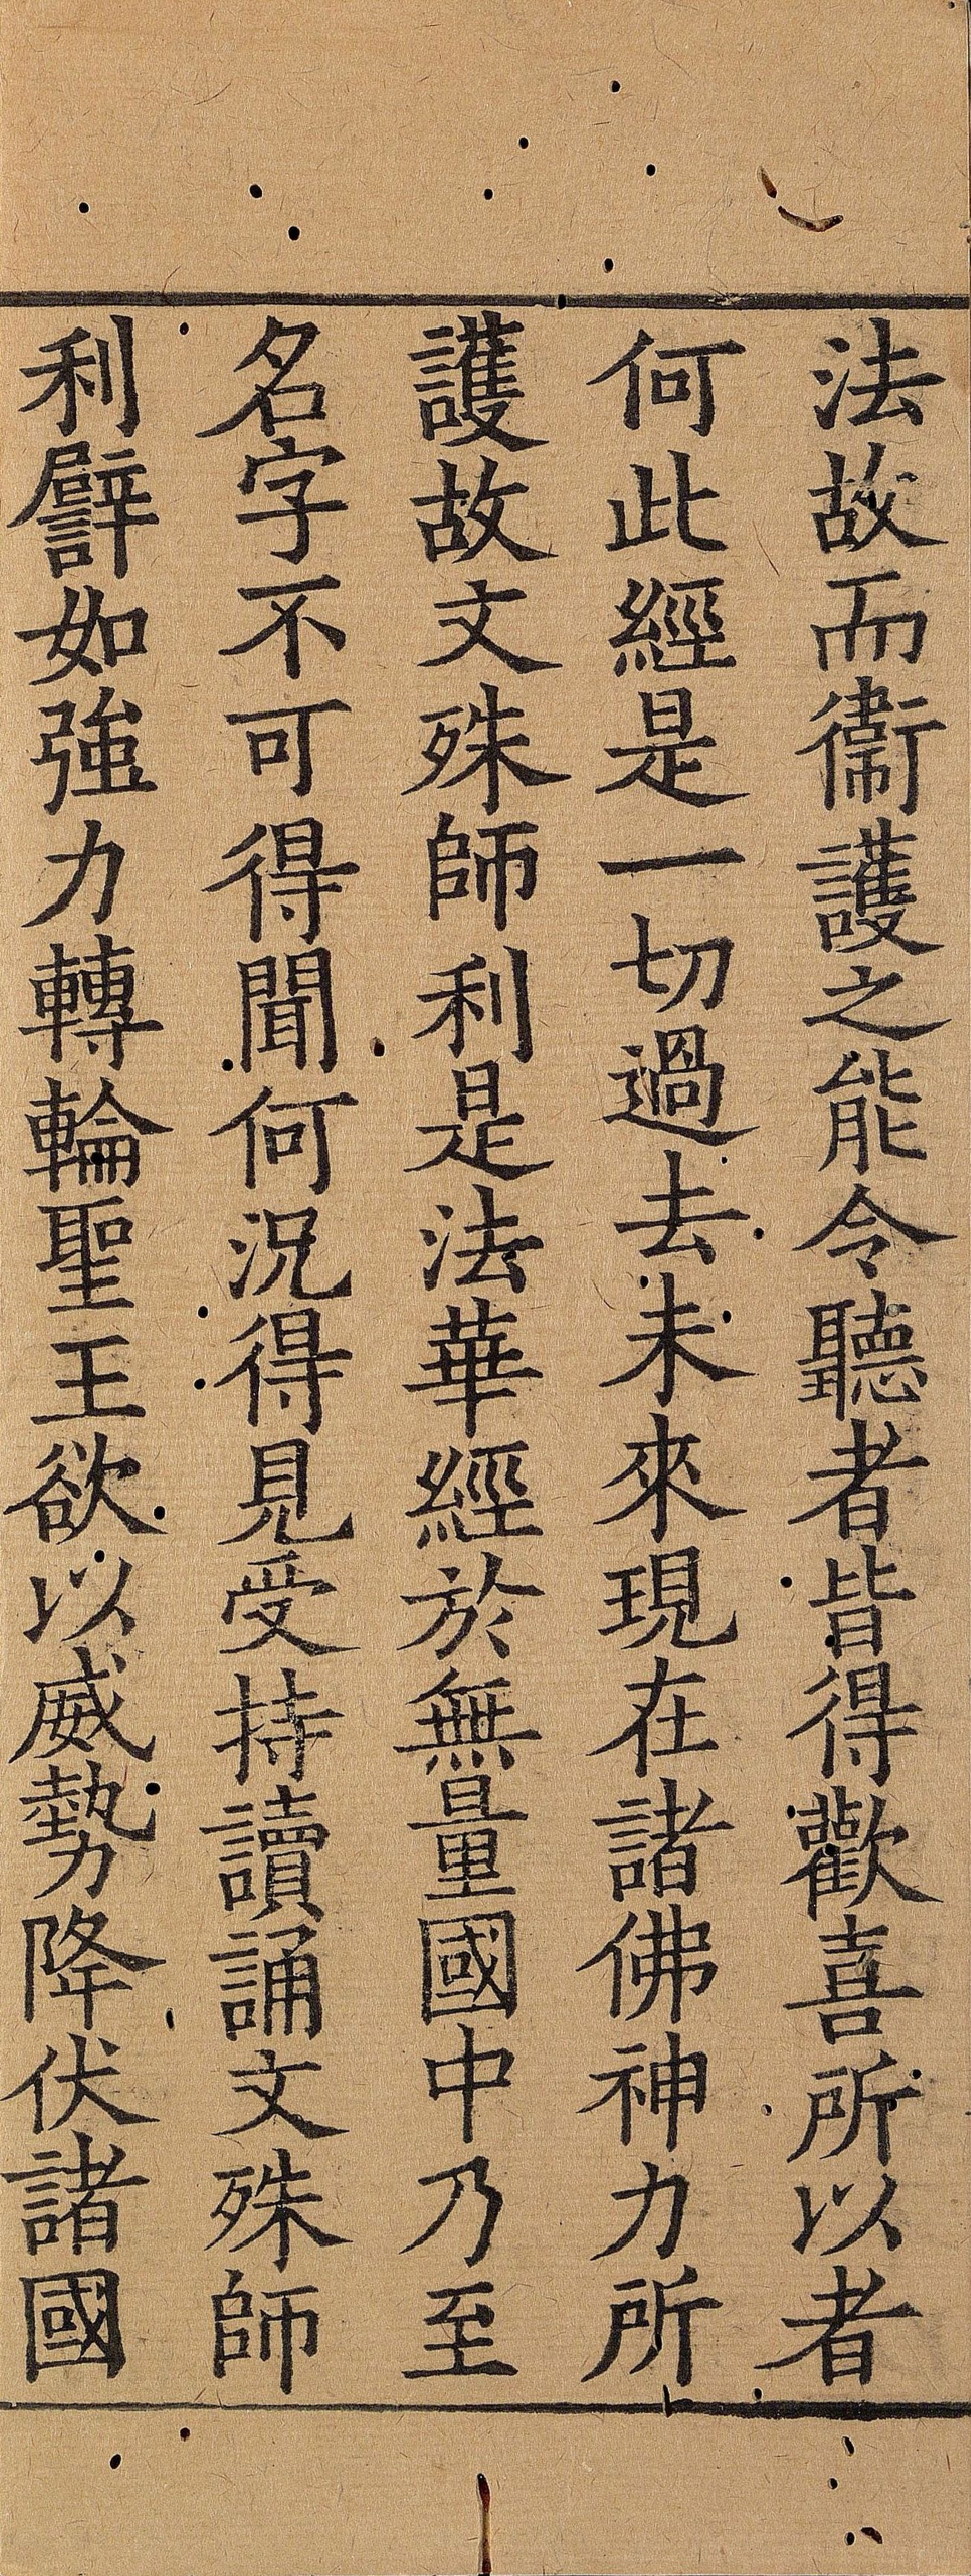 法故而衞護之能令聽者皆得歡喜所以者
何此經是一切過去未來現在諸佛神力所
護故文殊師利是法華經於無量國中乃至
名字不可得聞何況得見受持讀誦文殊師
利譬如強力轉輪聖王欲以威勢降伏諸國